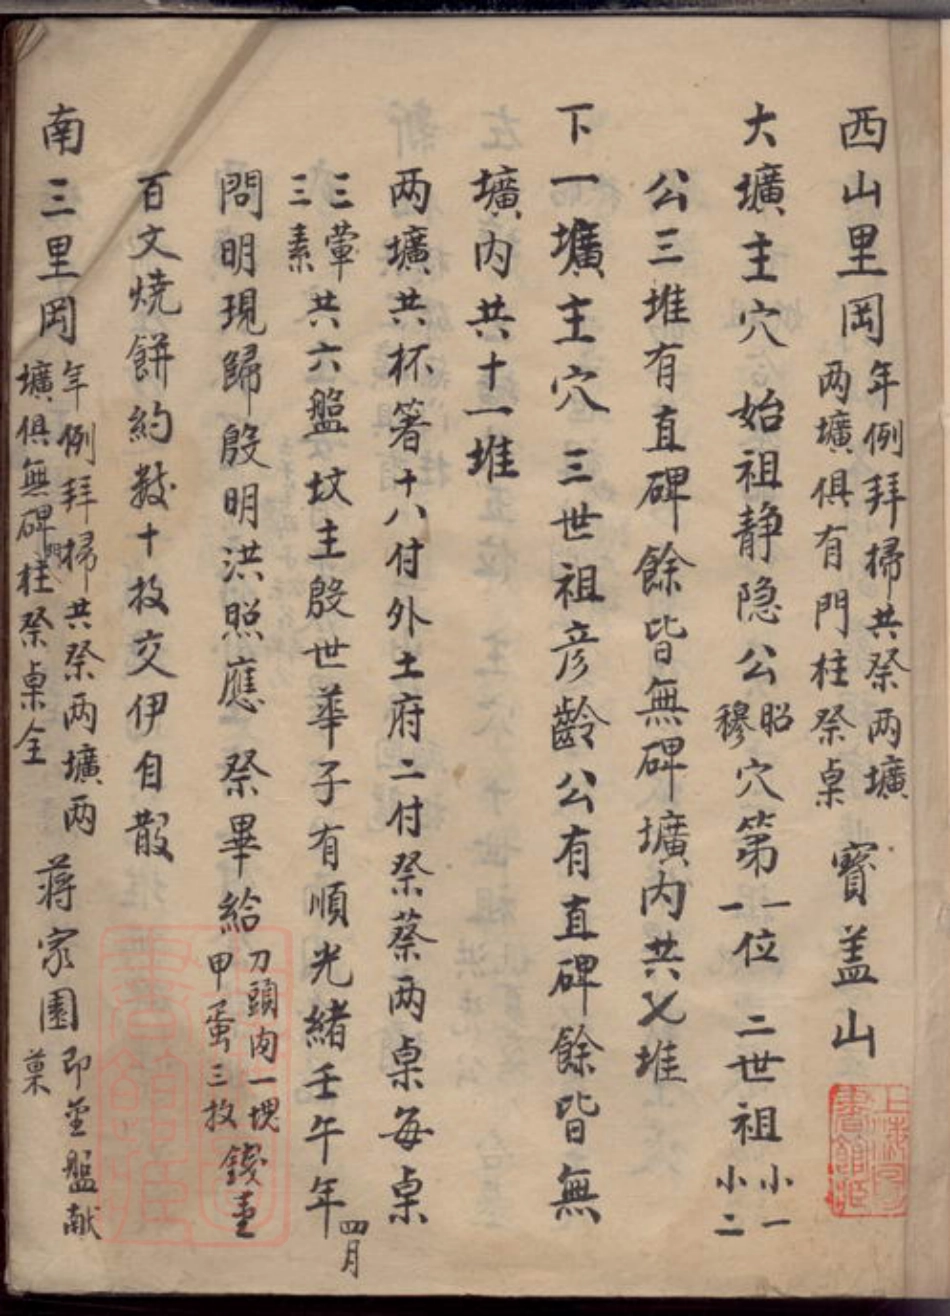 西山里岡 年例拜掃共祭两壙 两壙俱有門柱祭桌 寳盖山
大壙主穴 始祖静隐公 昭穆穴第一一位 二世祖 小一小二
公三堆有直碑餘皆無碑壙内共七堆
下一壙主穴三世祖彦齡公有直碑餘皆無
壙内共十一堆
两壙共杯箸十八付外土府二付祭蔡两桌每桌
三葷三素共六盤坟主殷世華子有順光緒壬午年四月
問明現歸殷明洪照應 祭畢給 刀頭肉一塊 甲蛋三枚 錢壹
百文燒餅約數十枚交伊自散
南三里岡 年例拜掃共祭两壙两 壙俱無碑門柱祭桌全 蒋家園 即 盤献 菓